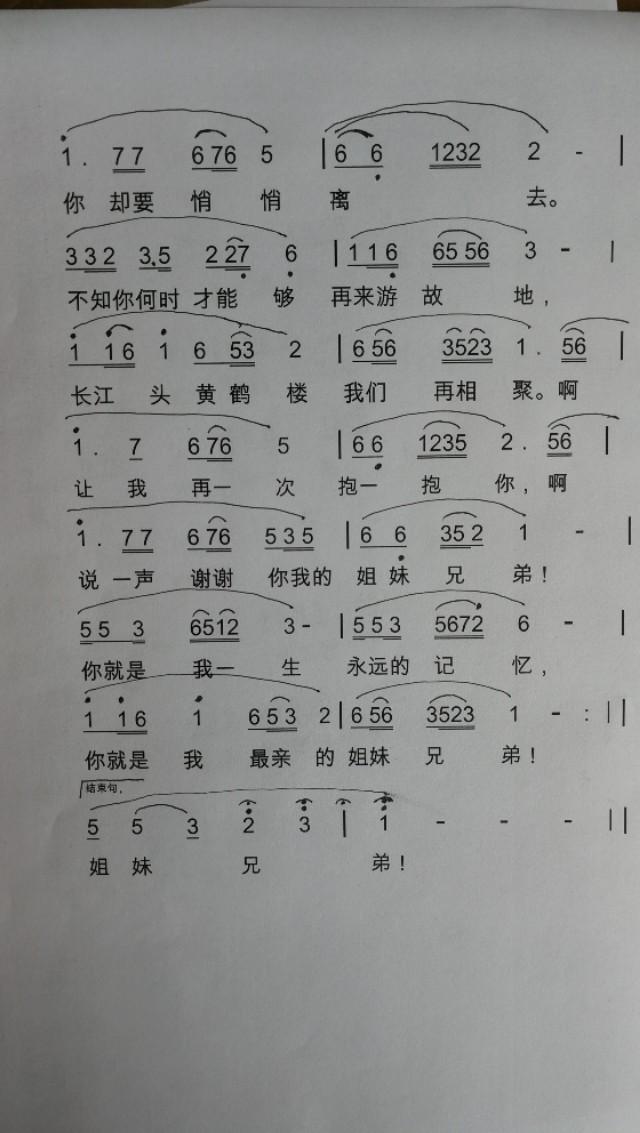 1. 77 676 5 | 6 6 1232 2 - |
你 却要 悄 悄 离 去。
332 3.5 227 6 | 116 6556 3 - |
不知你何时 才能 够 再来游 故 地，
1 16 1 6 53 2 | 656 3523 1. 56 |
长江 头 黄鹤 楼 我们 再相 聚。啊
1. 7 676 5 | 66 1235 2. 56 |
让 我 再一 次 抱一 抱 你，啊
1. 77 676 535 | 6 6 352 1 - |
说 一声 谢谢 你我的 姐妹 兄 弟！
55 3 6512 3- | 553 5672 6 - |
你就是 我一 生 永远的 记 忆，
1 16 1 653 2 | 656 3523 1 - :||
你就是 我 最亲 的 姐妹 兄 弟！
结束句，
5 5 3 2 3 | 1 - - - ||
姐 妹 兄 弟！